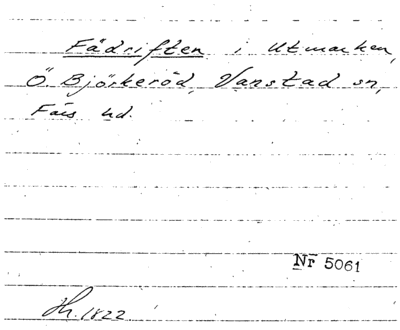 Fädriften i Utmarken,
Ö. Björkeröd, Vanstad sn,
Färs hd.
Nr 5061
Hh. 1822